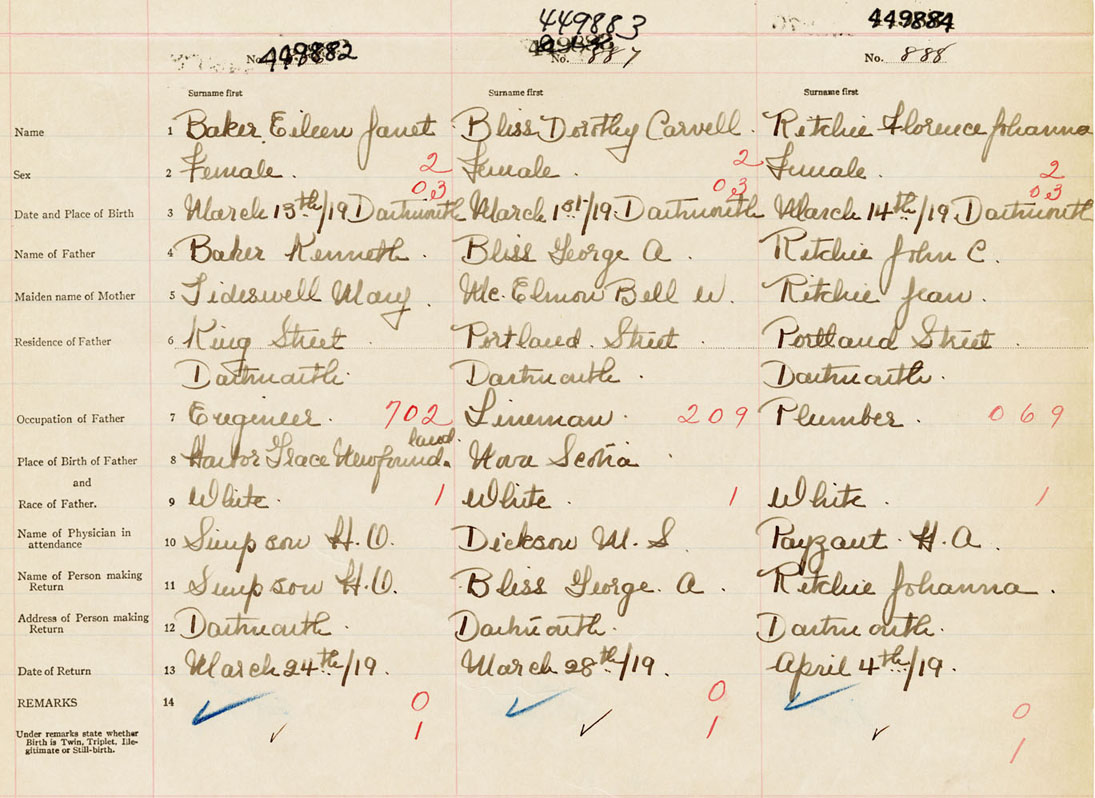 449883 449884
449882 No. 887 No. 888
No.
Surname first Surname first Surname first
Name 1 Baker Eileen Janet Bliss Dorothy Carvell. Ritchie Florence Johanna
Sex 2 Female. 2 Female. 2 Female. 2
03 03 03
Date and Place of Birth 3 March 13th/19 Dartmouth March 1st/19. Dartmouth March 14th/19. Dartmouth
Name of Father 4 Baker Kenneth. Bliss George A. Ritchie John C.
Maiden name of Mother 5 Tideswell Mary. Mc.Elmon Bell W. Ritchie Jean.
Residence of Father 6 King Street. Portland. Street. Portland Street.
Dartmouth. Dartmouth. Dartmouth.
Occupation of Father 7 Engineer. 702 Lineman. 209 Plumber. 069
land.
Place of Birth of Father 8 Harbor Grace Newfound. Nova Scotia
and
Race of Father. 9 White. 1 White. 1 White. 1
Name of Physician in
attendance 10 Simpson H.O. Dickson M.S. Payzant. H.A.
Name of Person making
Return 11 Simpson H.O. Bliss George. A. Ritchie Johanna.
Address of Person making
Return 12 Dartmouth. Dartmouth. Dartmouth.
Date of Return 13 March 24th/19. March 28th/19. April 4th/19.
REMARKS 14 0 0 0
Under remarks state whether 1 1 1
Birth is Twin, Triplet, Ille-
gitimate or Still-birth.